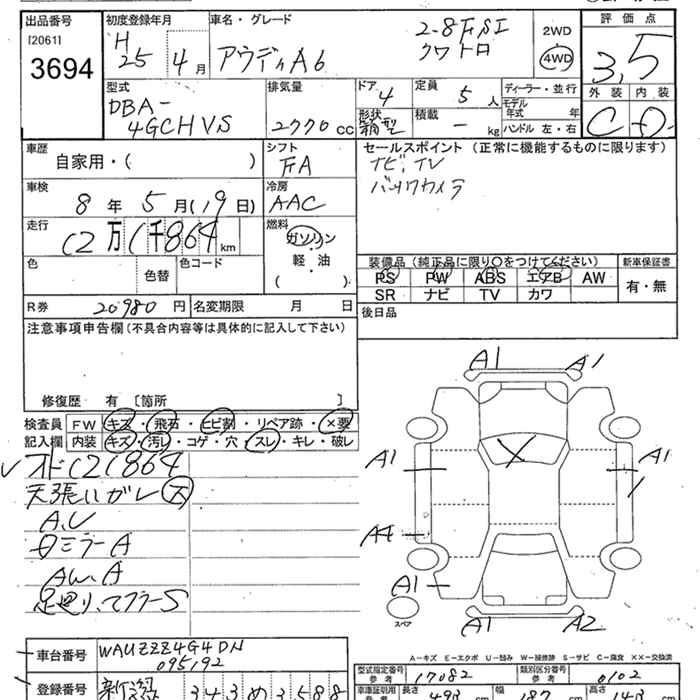 出品番号
[2061]
3694
初度登録年月
H
25 4月
車名・グレード
アウディA6
2.8FSI
クワトロ
2WD
4WD
評価点
3,5
外装 内装
C D
型式
DBA-
4GCHVS
排気量
2770 cc
ドア
4
形状
箱型
定員
5 人
積載
- kg
ディーラー・並行
モデル
年式 年
ハンドル 左・右
車歴
自家用・( )
シフト
FA
セールスポイント (正常に機能するものに限ります)
ナビ、TV
バックカメラ
車検
8 年 5 月(19日)
冷房
AAC
走行
12万1千864 km
燃料
ガソリン
軽・油
( )
色
色替
色コード
装備品(純正品に限り○をつけてください)
新車保証書
PS PW ABS エアB AW
SR ナビ TV カワ
有・無
R券 20980 円
名変期限 月 日
後日品
注意事項申告欄(不具合内容等は具体的に記入して下さい)
修復歴 有 〔箇所 〕
検査員
記入欄
FW キズ・飛石・ヒビ割・リペア跡・×要
内装 キズ・汚レ・コゲ・穴・スレ・キレ・破レ
オド121864
天張いガレ大
A.U
Dミラー A
AW.A
足廻り、マフラーS
A1 A1
A1 A1
A4
A1
スペア
A1 A2
A-キズ E-エクボ U-凹み W-補修跡 S-サビ C-腐食 XX-交換済
車台番号
WAUZZZ4G4DN
095192
登録番号
343 め 3588
型式指定番号
参考
17082
類別区分番号
参考
0102
車庫証明用
長さ 490 cm
幅 187 cm
高さ 148 cm